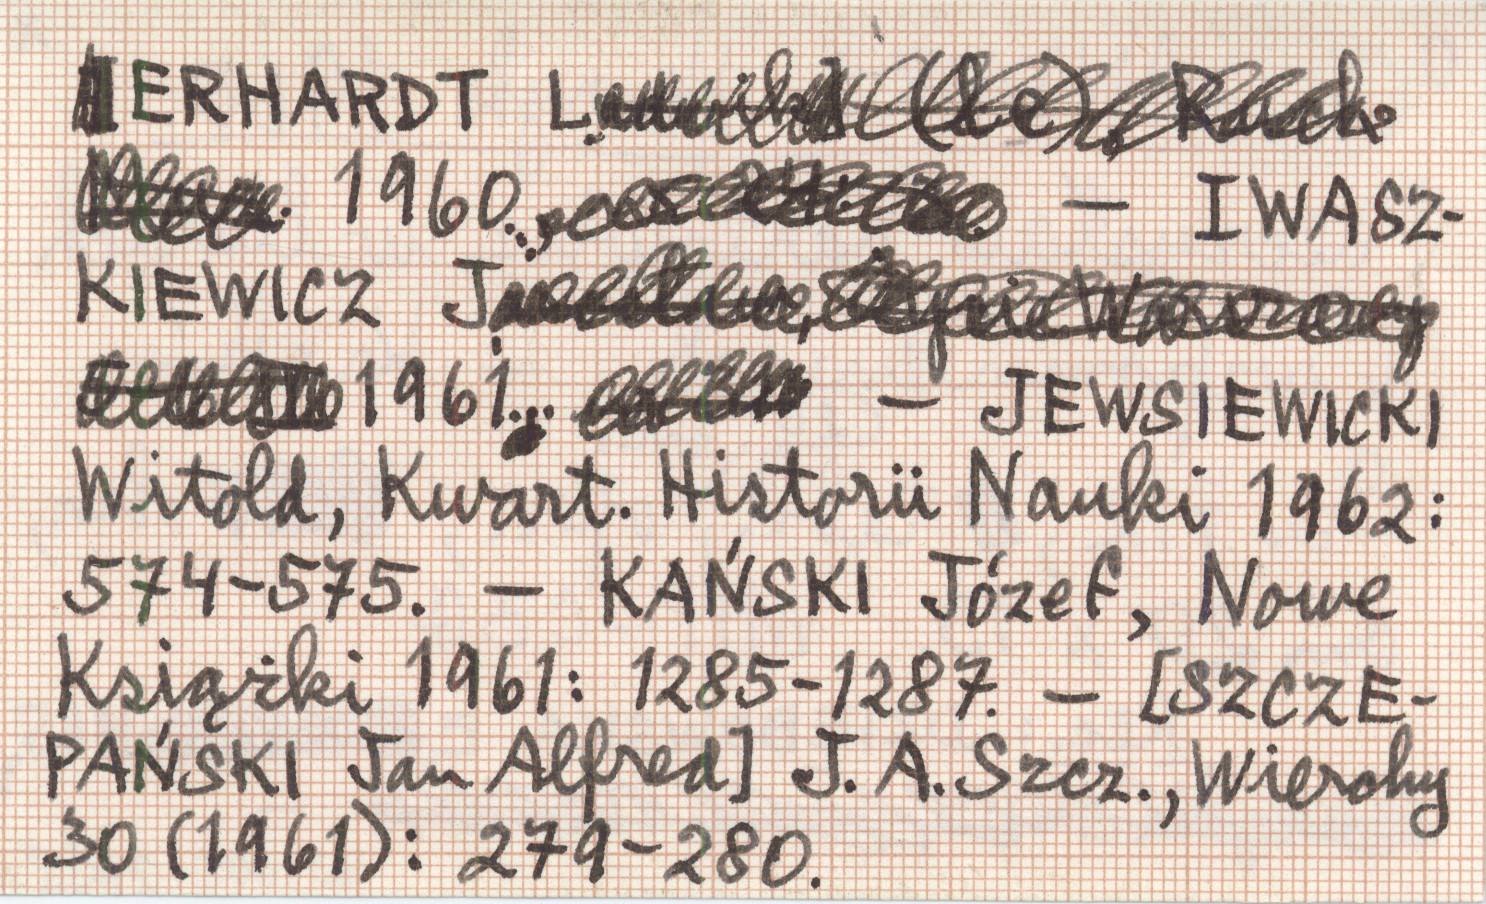 ERHARDT L.
1960. — IWASZ-
KIEWICZ J.
1961. — JEWSIEWICKI
Witold, Kwart. Historii Nauki 1962:
574-575. — KAŃSKI Józef, Nowe
Książki 1961: 1285-1287. — [SZCZE-
PAŃSKI Jan Alfred] J. A. Szcz., Wierchy
30 (1961): 279-280.